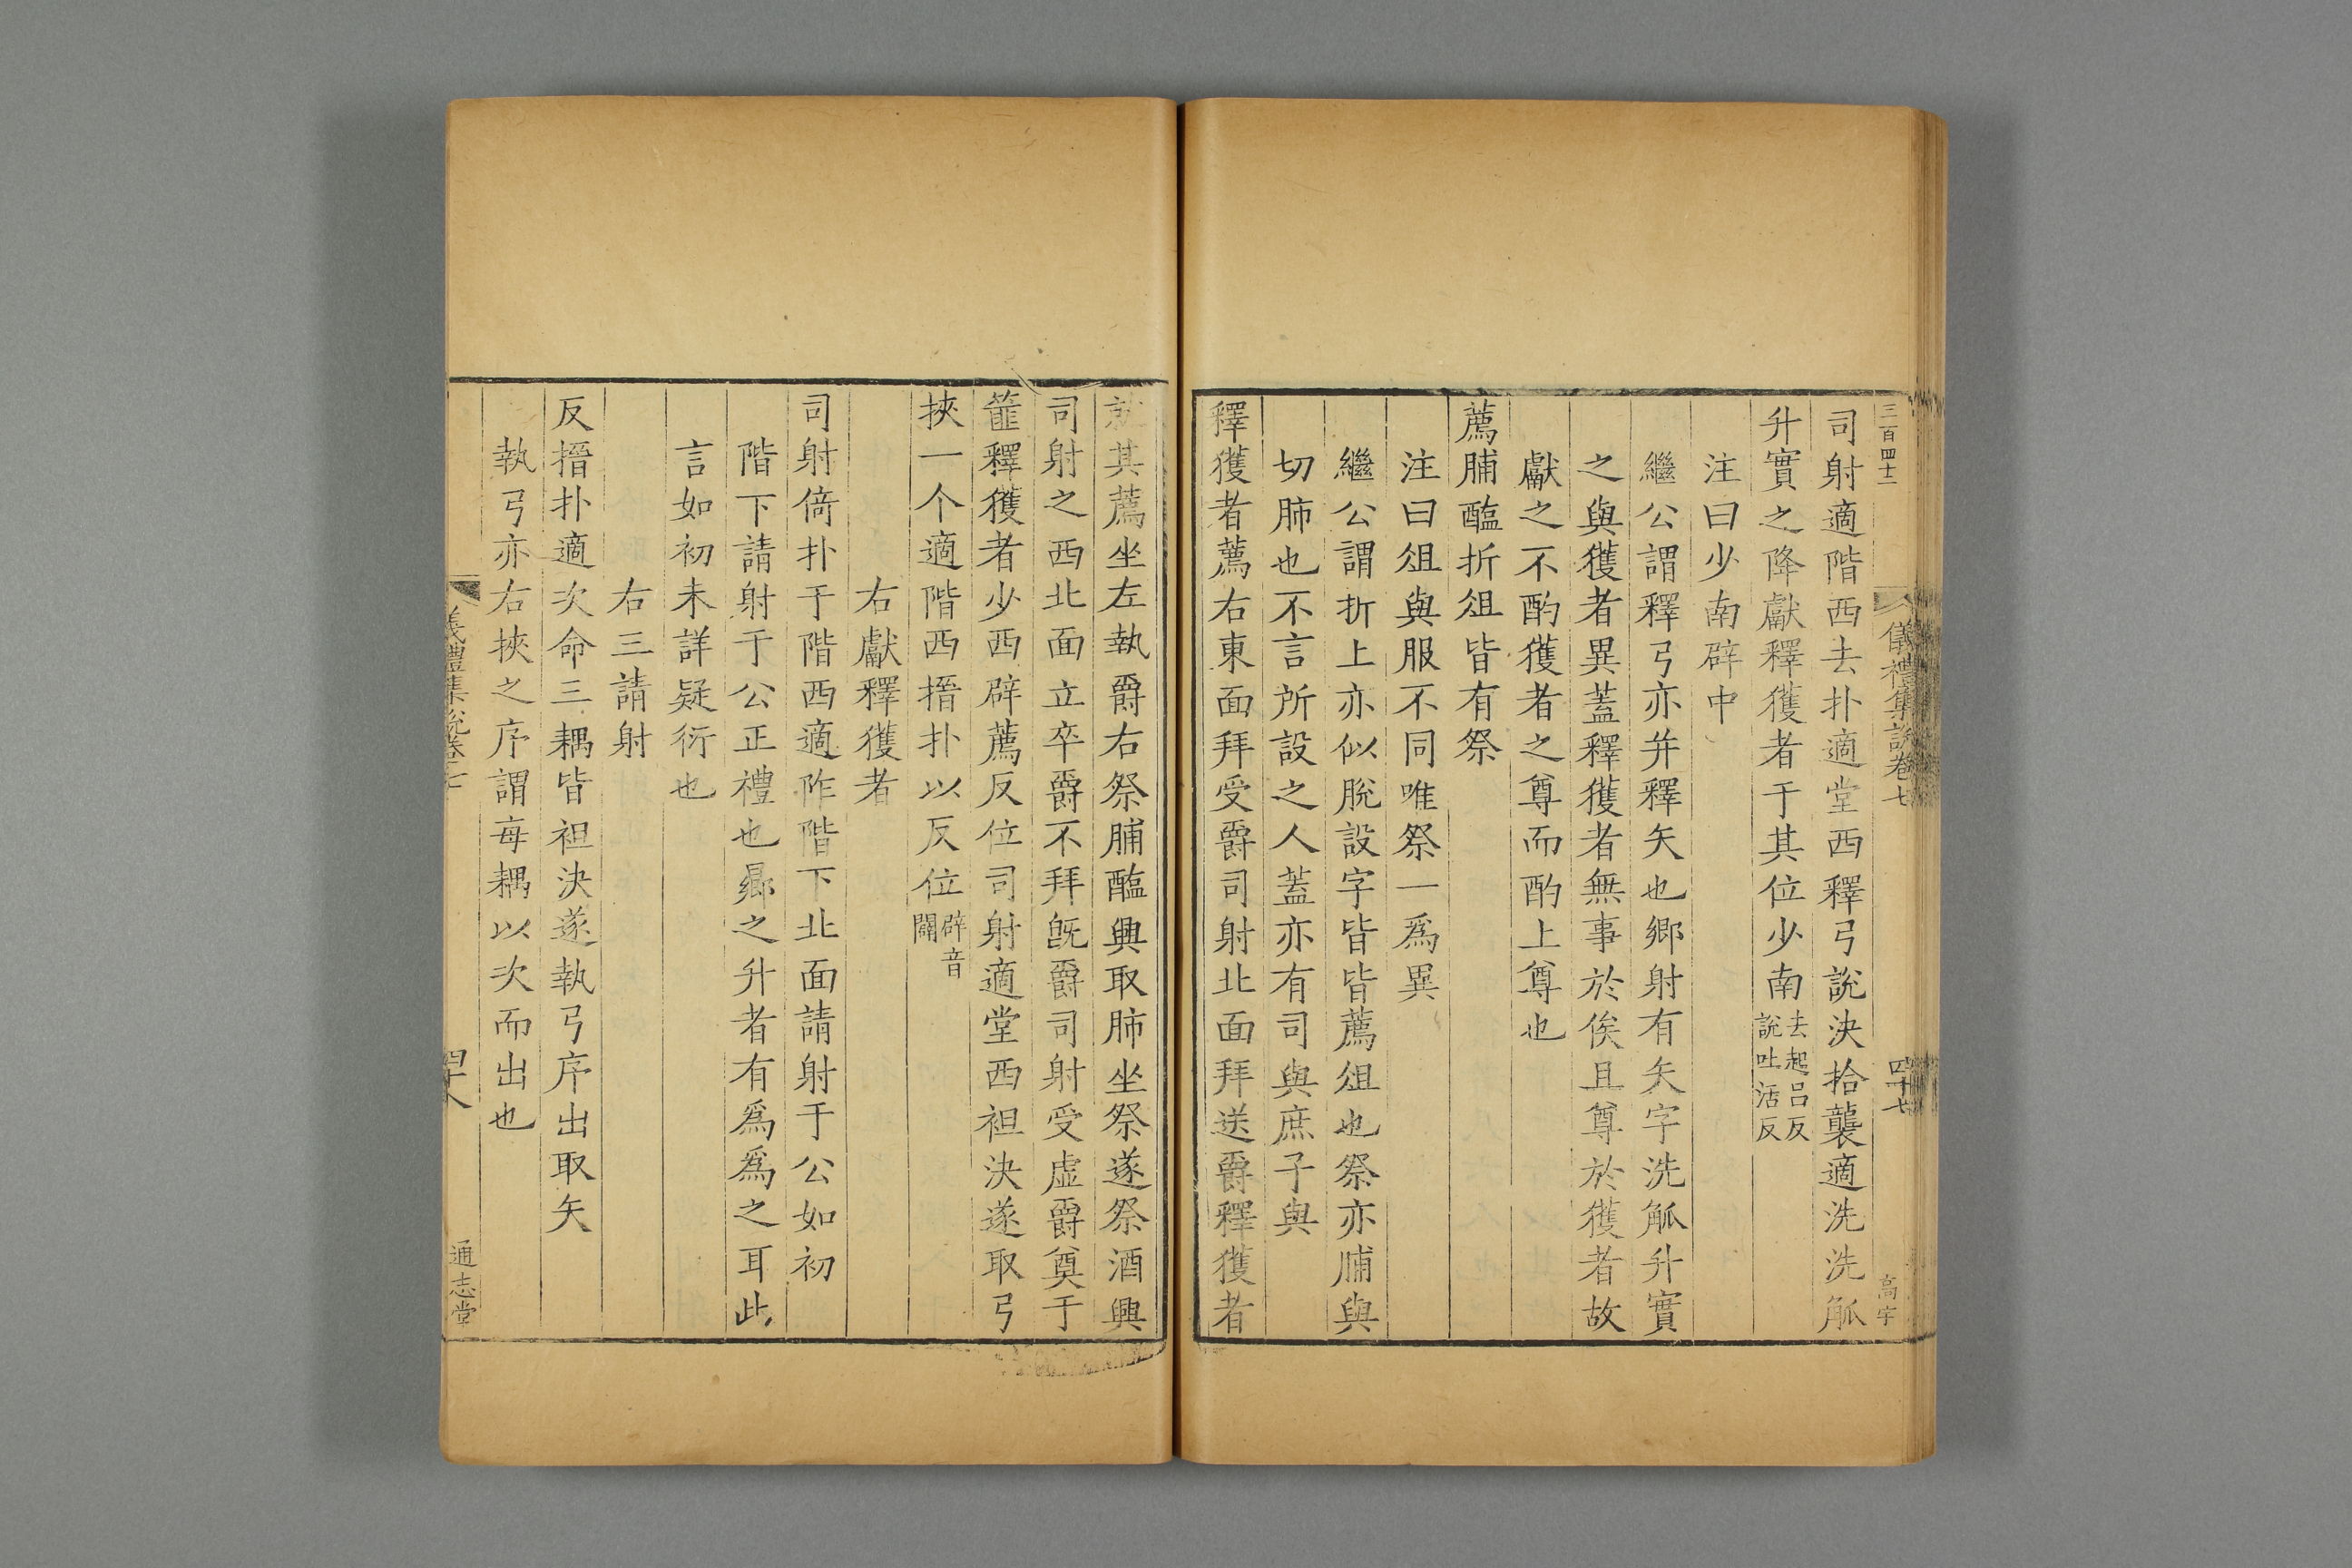 三百四十二
儀禮集説卷七
四十七
高宇
司射適階西去扑適堂西釋弓說決拾襲適洗洗觚
升實之降獻釋獲者于其位少南去起呂反說吐活反
注曰少南辟中
繼公謂釋弓亦并釋矢也鄉射有矢字洗觚升實
之與獲者異蓋釋獲者無事於俟且尊於獲者故
獻之不酌獲者之尊而酌上尊也
薦脯醢折俎皆有祭
注曰俎與服不同唯祭一爲異
繼公謂折上亦似脫設字皆皆薦俎也祭亦脯與
切肺也不言所設之人蓋亦有司與庶子與
釋獲者薦右東面拜受爵司射北面拜送爵釋獲者
就其薦坐左執爵右祭脯醢興取肺坐祭遂祭酒興
司射之西北面立卒爵不拜旣爵司射受虛爵奠于
篚釋獲者少西辟薦反位司射適堂西袒決遂取弓
挾一个適階西搢扑以反位辟音闢
右獻釋獲者
司射倚扑于階西適阼階下北面請射于公如初
階下請射于公正禮也鄉之升者有爲爲之耳此
言如初未詳疑衍也
右三請射
反搢扑適次命三耦皆袒決遂執弓序出取矢
執弓亦右挾之序謂每耦以次而出也
儀禮集說卷七
四十八
通志堂